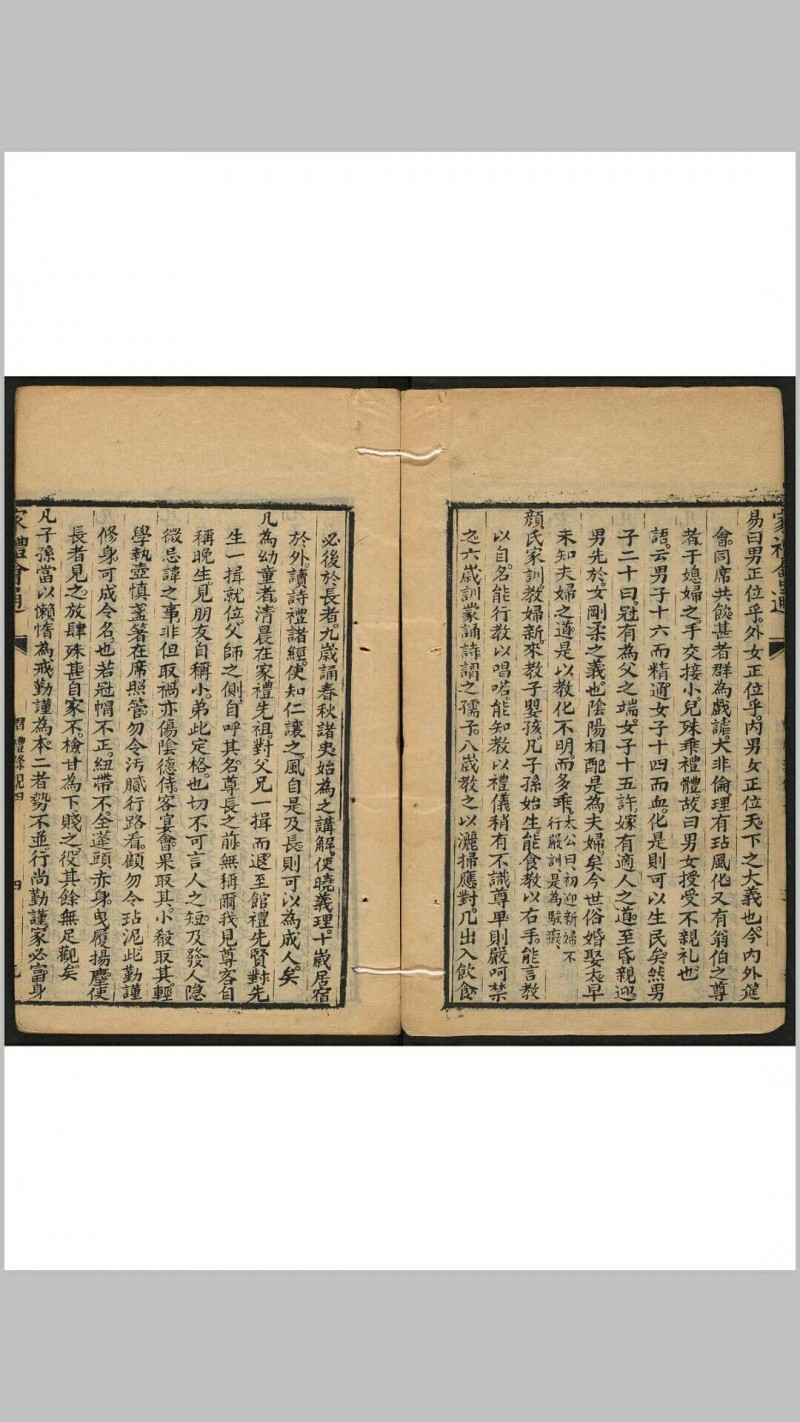 易曰男正位乎外女正位乎内男女正位天下之大義也今内外筵
會同席共飲甚者群為戲謔大非倫理有玷風化又有翁伯之尊
者于媳婦之手交接小兒殊乖禮體故曰男女授受不親礼也
語云男子十六而精通女子十四而血化是則可以生民矣然男
子二十曰冠有為父之端女子十五許嫁有適人之道至昏親迎
男先於女剛柔之義也陰陽相配是為夫婦矣今世俗婚娶太早
未知夫婦之道是以教化不明而多乖太公曰初迎新婦不
行嚴訓是為騃癡
顔氏家訓教婦新來教子嬰孩凡子孫始生能食教以右手能言教
以自名能行教以唱喏能知教以禮儀稍有不識尊卑則嚴呵禁
之六歲訓蒙誦詩謂之孺子八歲教之以灑掃應對几出入飲食
家禮會通
必後於長者九歲誦春秋諸史始為之講解使曉義理十歲居宿
於外讀詩禮諸經使知仁讓之風自是及長則可以為成人矣
凡為幼童者清晨在家禮先祖對父兄一揖而退至館禮先賢對先
生一揖就位父師之側自呼其名尊長之前無稱爾我見尊客自
稱晚生見朋友自稱小弟此定格也切不可言人之短及發人隱
微忌諱之事非但取禍亦傷陰德待客宴會果取其小殽取其輕
學執壺慎盞箸在席照管勿令汚膩行路看顧勿令玷泥此勤謹
修身可成令名也若冠帽不正紐帶不全蓬頭赤身曳履揚塵使
長者見之放肆殊甚自家不檢甘為下賤之役其餘無足觀矣
凡子孫當以懶惰為戒勤謹為本二者勢不並行尚勤謹家必富身
家禮會通
四